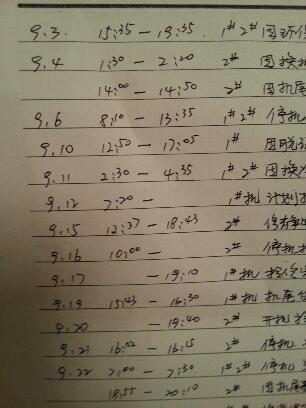 9.3 15:35 — 19:35 1# 2# 因环保
9.4 1:30 — 2:20 2# 因换
14:00 — 14:50 2# 因机尾
9.6 8:10 — 13:35 1# 2# 停机
9.10 12:50 — 17:05 1# 因脱
9.11 2:30 — 4:35 1# 2# 因换
9.12 7:20 — 1#机 计划
9.15 12:37 — 18:43 2# 停
9.16 10:00 — 2# 停机
9.17 — 19:10 1#机
9.19 15:43 — 16:30 1#机 机尾
9.20 — 19:40 2# 开机
9.21 16:02 — 16:15 2# 停机
9.22 7:00 — 7:30 1# 2# 停机
18:55 — 20:10 2# 因机尾